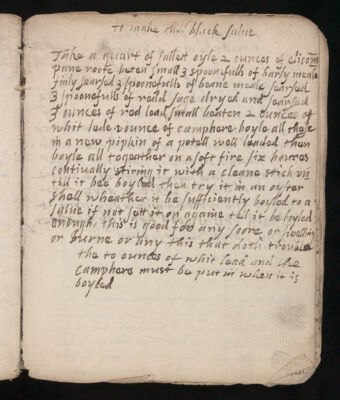 to make the black salve
Take a quart of sallett oyle 2 ounces of elicom
pane roote beten small 3 spoonefulls of barly meale
finly searsed 3 spoonefulls of beane meale searsed
3 spoonefulls of redd sage dryed and searsed
3 ounces of red lead small beaten 2 ounces of
whit lede ounce of camphere boyle all these
in a new pipkin of a potell well leaded then
boyle all togauther on a soft fire six houres
continually stiring it with a cleane stick
till it bee boyled then try it in an oyster
shell wheather it be sufficiently boyled to a
salve if not sett it on againe till it be boyled
enough, this is good for any soore or swelling
or burne or any this that doth trouble
the to ounces of whit lead and the
camphere must be put in when it is
boyled